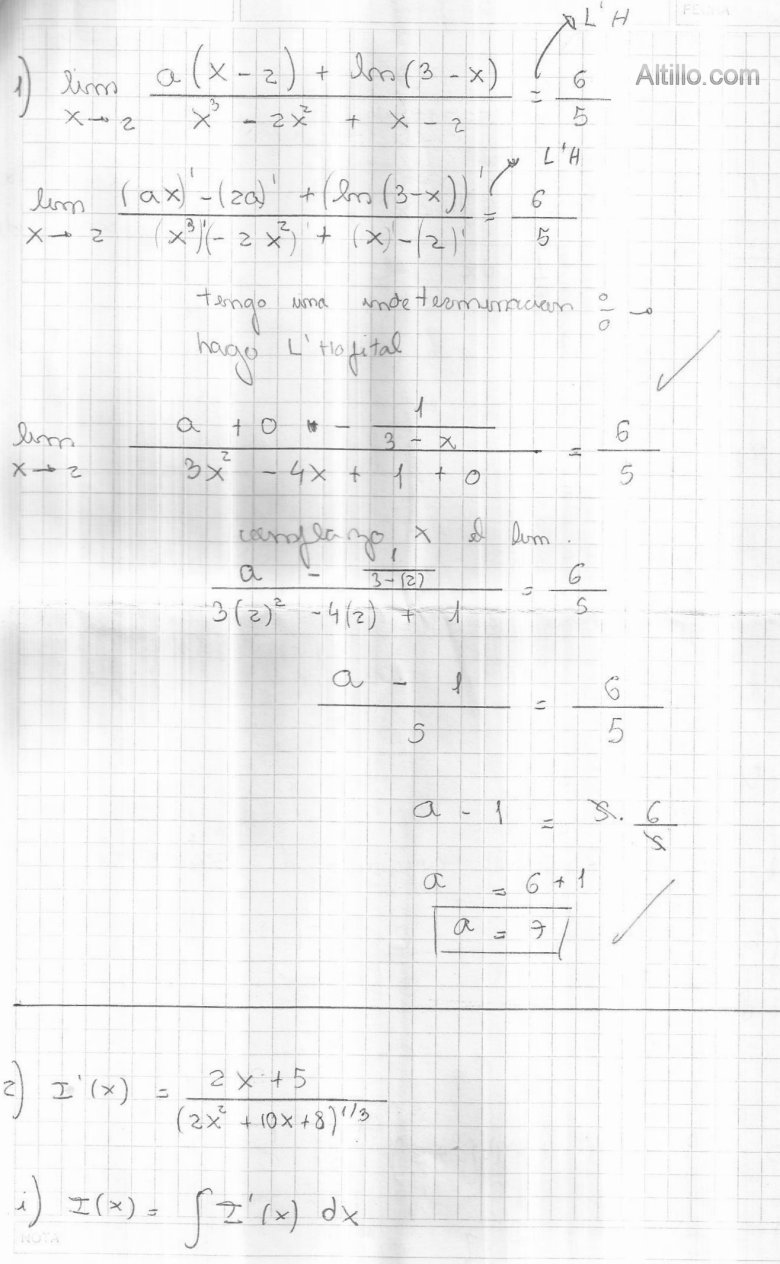 FECHA
L'H
Altillo.com
1) lim x→2 (a(x-2) + ln(3-x)) / (x³ - 2x² + x - 2) = 6/5
L'H
lim x→2 ((ax)' - (2a)' + (ln(3-x))') / ((x³)'(-2x²)' + (x)' - (2)') = 6/5
tengo una indeterminacion 0/0 →
hago L'Hopital
lim x→2 (a + 0 - 1/(3-x)) / (3x² - 4x + 1 + 0) = 6/5
x el lim.
(a - 1/(3-(2))) / (3(2)² - 4(2) + 1) = 6/5
(a - 1) / 5 = 6/5
a - 1 = 5 · 6/5
a = 6 + 1
a = 7
2) I'(x) = (2x + 5) / (2x² + 10x + 8)^1/3
i) I(x) = ∫ I'(x) dx
NOTA